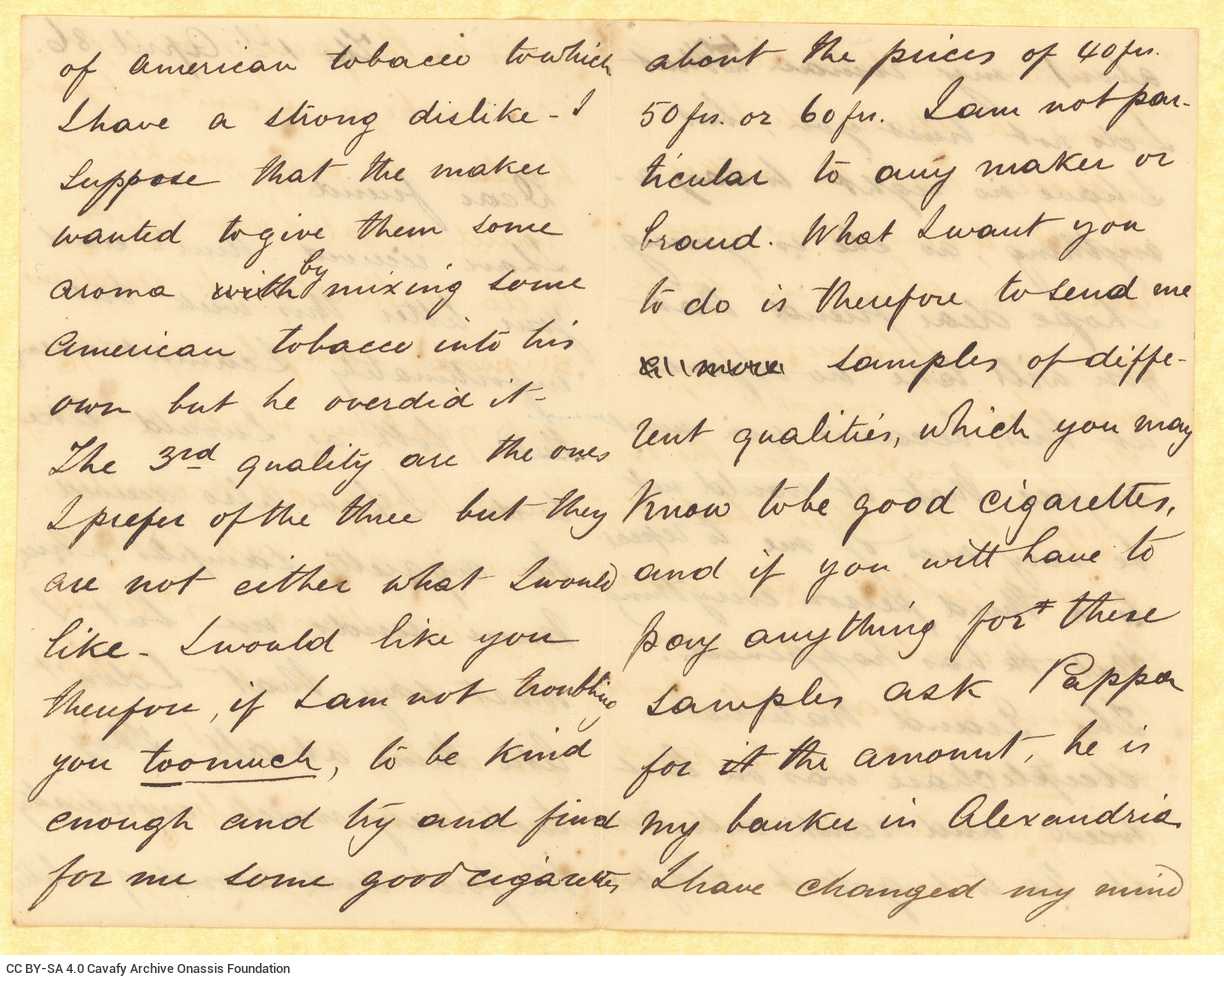 of American tobacco to which
I have a strong dislike - I
suppose that the maker
wanted to give them some
aroma with by mixing some
American tobacco into his
own but he overdid it -
The 3rd quality are the ones
I prefer of the three but they
are not either what I would
like - I would like you
therefore, if I am not troubling
you too much, to be kind
enough and try and find
for me some good cigarettes
about the prices of 40 frs.
50 frs. or 60 frs. I am not par-
ticular to any maker or
brand. What I want you
to do is therefore to send me
samples of diffe-
rent qualities, which you may
know to be good cigarettes,
and if you will have to
pay anything for these
samples ask Pappa
for it the amount, he is
my banker in Alexandria
I have changed my mind
CC BY-SA 4.0 Cavafy Archive Onassis Foundation